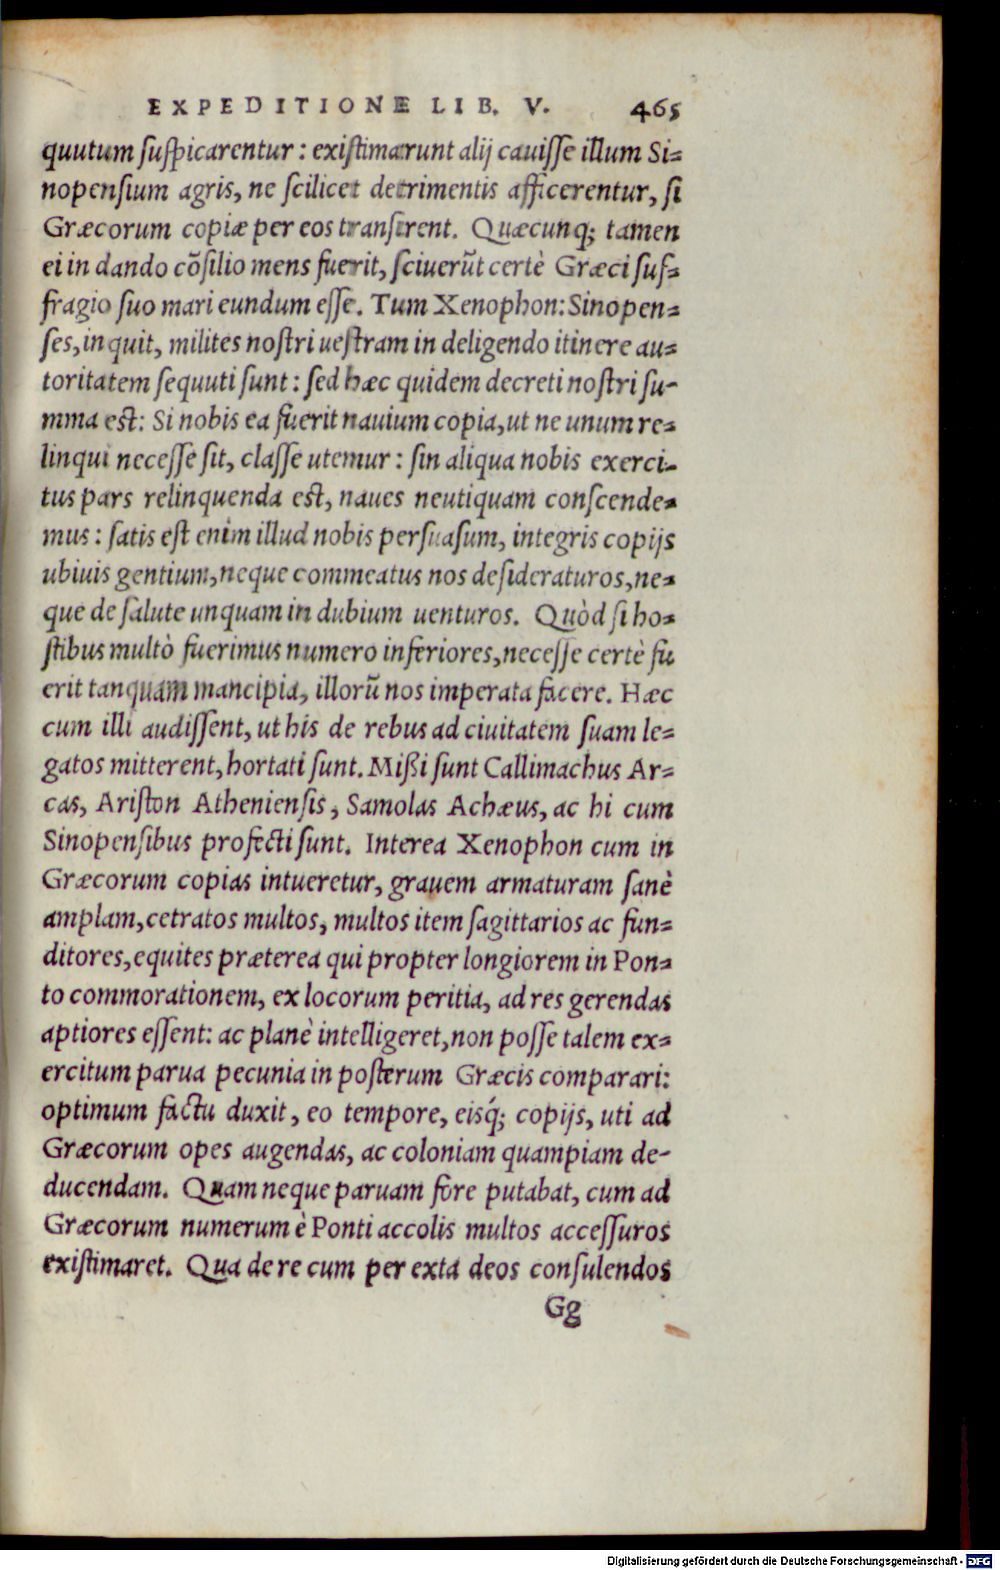 EXPEDITIONE LIB. V. 465
quutum suspicarentur: existimarunt alij cauisse illum Si=
nopensium agris, ne scilicet detrimentis afficerentur, si
Græcorum copiæ per eos transirent. Quæcunq; tamen
ei in dando cõsilio mens fuerit, sciuerũt certè Græci suf=
fragio suo mari eundum esse. Tum Xenophon: Sinopen=
ses, inquit, milites nostri uestram in deligendo itinere au=
toritatem sequuti sunt: sed hæc quidem decreti nostri su-
mma est: Si nobis ea fuerit nauium copia, ut ne unum re=
linqui necesse sit, classe utemur: sin aliqua nobis exerci-
tus pars relinquenda est, naues neutiquam conscende=
mus: satis est enim illud nobis persuasum, integris copijs
ubiuis gentium, neque commeatus nos desideraturos, ne=
que de salute unquam in dubium uenturos. Quòd si ho=
stibus multò fuerimus numero inferiores, necesse certè fu
erit tanquam mancipia, illorũ nos imperata facere. Hæc
cum illi audissent, ut his de rebus ad ciuitatem suam le=
gatos mitterent, hortati sunt. Mißi sunt Callimachus Ar=
cas, Ariston Atheniensis, Samolas Achæus, ac hi cum
Sinopensibus profecti sunt. Interea Xenophon cum in
Græcorum copias intueretur, grauem armaturam sanè
amplam, cetratos multos, multos item sagittarios ac fun=
ditores, equites præterea qui propter longiorem in Pon=
to commorationem, ex locorum peritia, ad res gerendas
aptiores essent: ac planè intelligeret, non posse talem ex=
ercitum parua pecunia in posterum Græcis comparari:
optimum factu duxit, eo tempore, eisq́; copijs, uti ad
Græcorum opes augendas, ac coloniam quampiam de-
ducendam. Quam neque paruam fore putabat, cum ad
Græcorum numerum è Ponti accolis multos accessuros
existimaret. Qua de re cum per exta deos consulendos
Gg
Digitalisierung gefördert durch die Deutsche Forschungsgemeinschaft - DFG